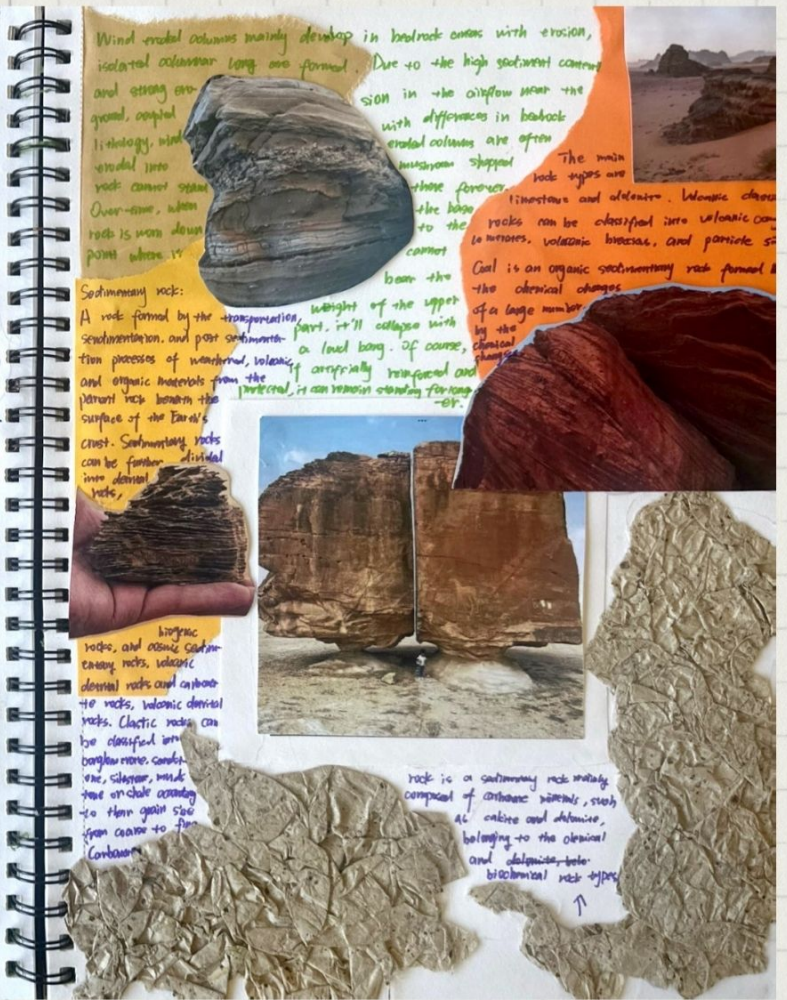 Wind eroded columns mainly develop in bedrock areas with erosion,
isolated columnar long are formed. Due to the high sediment content
and strong ero- sion in the airflow near the
ground, coupled with differences in bedrock
lithology, wind eroded columns are often
eroded into mushroom shapped
rock cannot stand there forever.
Over time, when the base
rock is worn down to the
point where it cannot
bear the
weight of the upper
part, it'll collapse with
a loud bang. Of course,
if artifrially reinforced and
protected, it can remain standing for long
-er.
The main
rock types are
limestone and dolomite. Volcanic
rocks can be classified into volcanic
lomerates, volcanic breccias, and particle
Coal is an organic sedimentary rock formed
the chemical changes
of a large number
by the
chemical
changes
Sedimentary rock:
A rock formed by the transportation,
sendimentation, and post sedimenta-
tion processes of weathered, volcanic,
and organic materials from the
parent rock beneath the
surface of the Earth's
crust. Sedimentary rocks
can be further divided
into
rocks,
biogenic
rocks, and sedim-
entary rocks, volcanic
rocks and carbona-
te rocks, volcanic
rocks. Clastic rocks can
be classified into
sandst-
one, siltstone, muds
tone or shale according
to their grain size
from coarse to fine
Carbonate
rock is a sedimentary rock mainly
composed of carbonate minerals, such
as calcite and dolomite,
belonging to the chemical
and dolomite, belo-
biochemical rock types